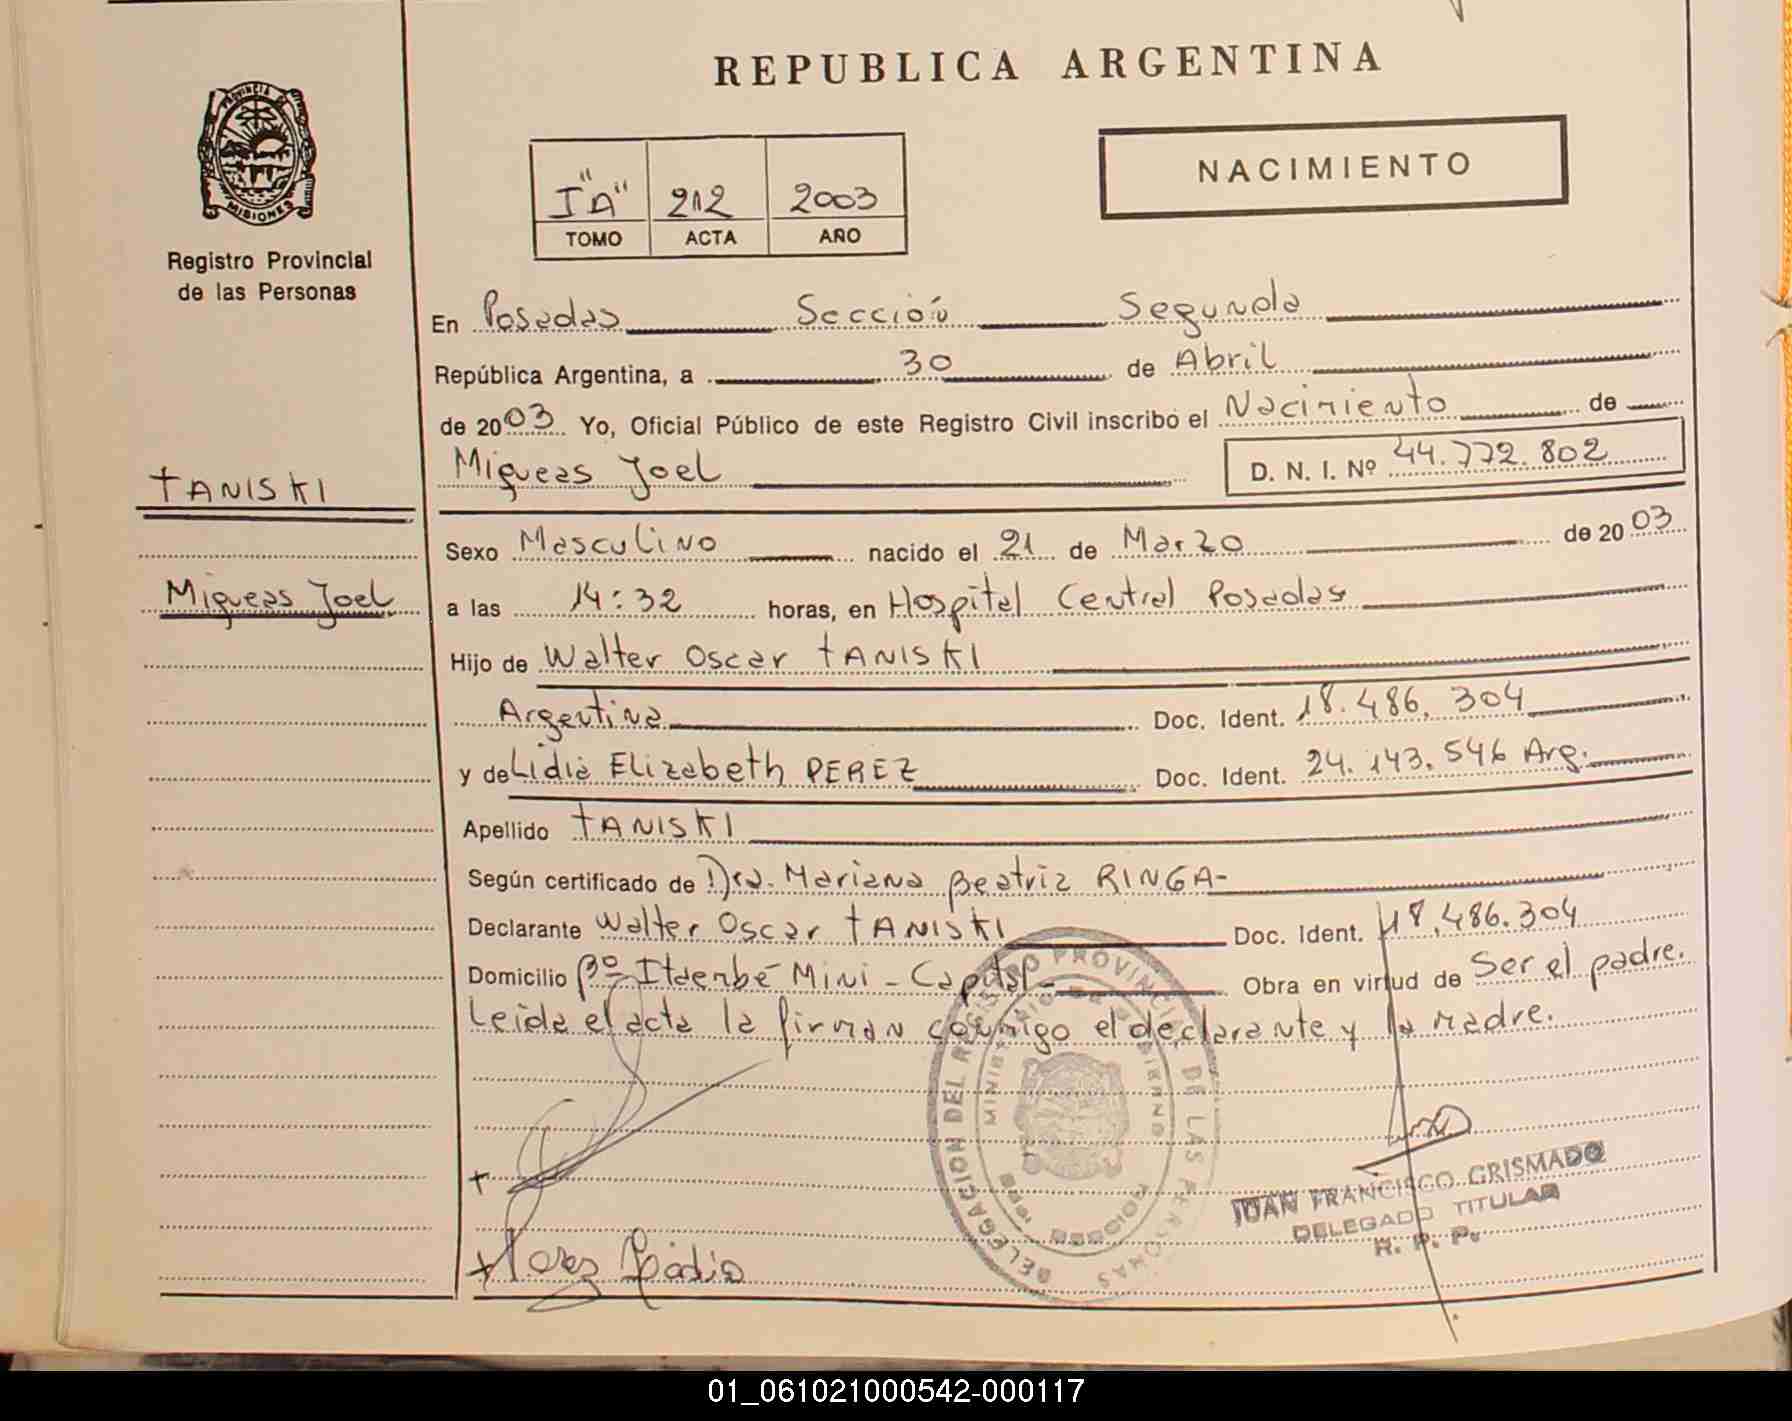 REPUBLICA ARGENTINA
PROVINCIA DE
MISIONES
Registro Provincial
de las Personas
NACIMIENTO
I "A" 212 2003
TOMO ACTA AÑO
En Posadas Sección Segunda
República Argentina, a 30 de Abril
de 2003 Yo, Oficial Público de este Registro Civil inscribo el Nacimiento de
Migueas Joel D. N. I. Nº 44.772.802
TANISKI
Sexo Masculino nacido el 21 de Marzo de 2003
Migueas Joel
a las 14:32 horas, en Hospital Central Posadas
Hijo de Walter Oscar TANISKI
Argentina Doc. Ident. 18.486.304
y de Lidia Elizabeth PEREZ Doc. Ident. 24.143.546 Arg.
Apellido TANISKI
Según certificado de Dra. Mariana Beatriz RINGA-
Declarante Walter Oscar TANISKI Doc. Ident. 18.486.304
Domicilio Bº Itaembé Mini - Capital - Obra en virtud de Ser el padre.
Leida el acta la firman conmigo el declarante y la madre.
DELEGACION DEL REGISTRO PROVINCIAL DE LAS PERSONAS
MINISTERIO DE GOBIERNO
POSADAS
JUAN FRANCISCO GRISMADO
DELEGADO TITULAR
R. P. P.
Perez Lidia
01_061021000542-000117